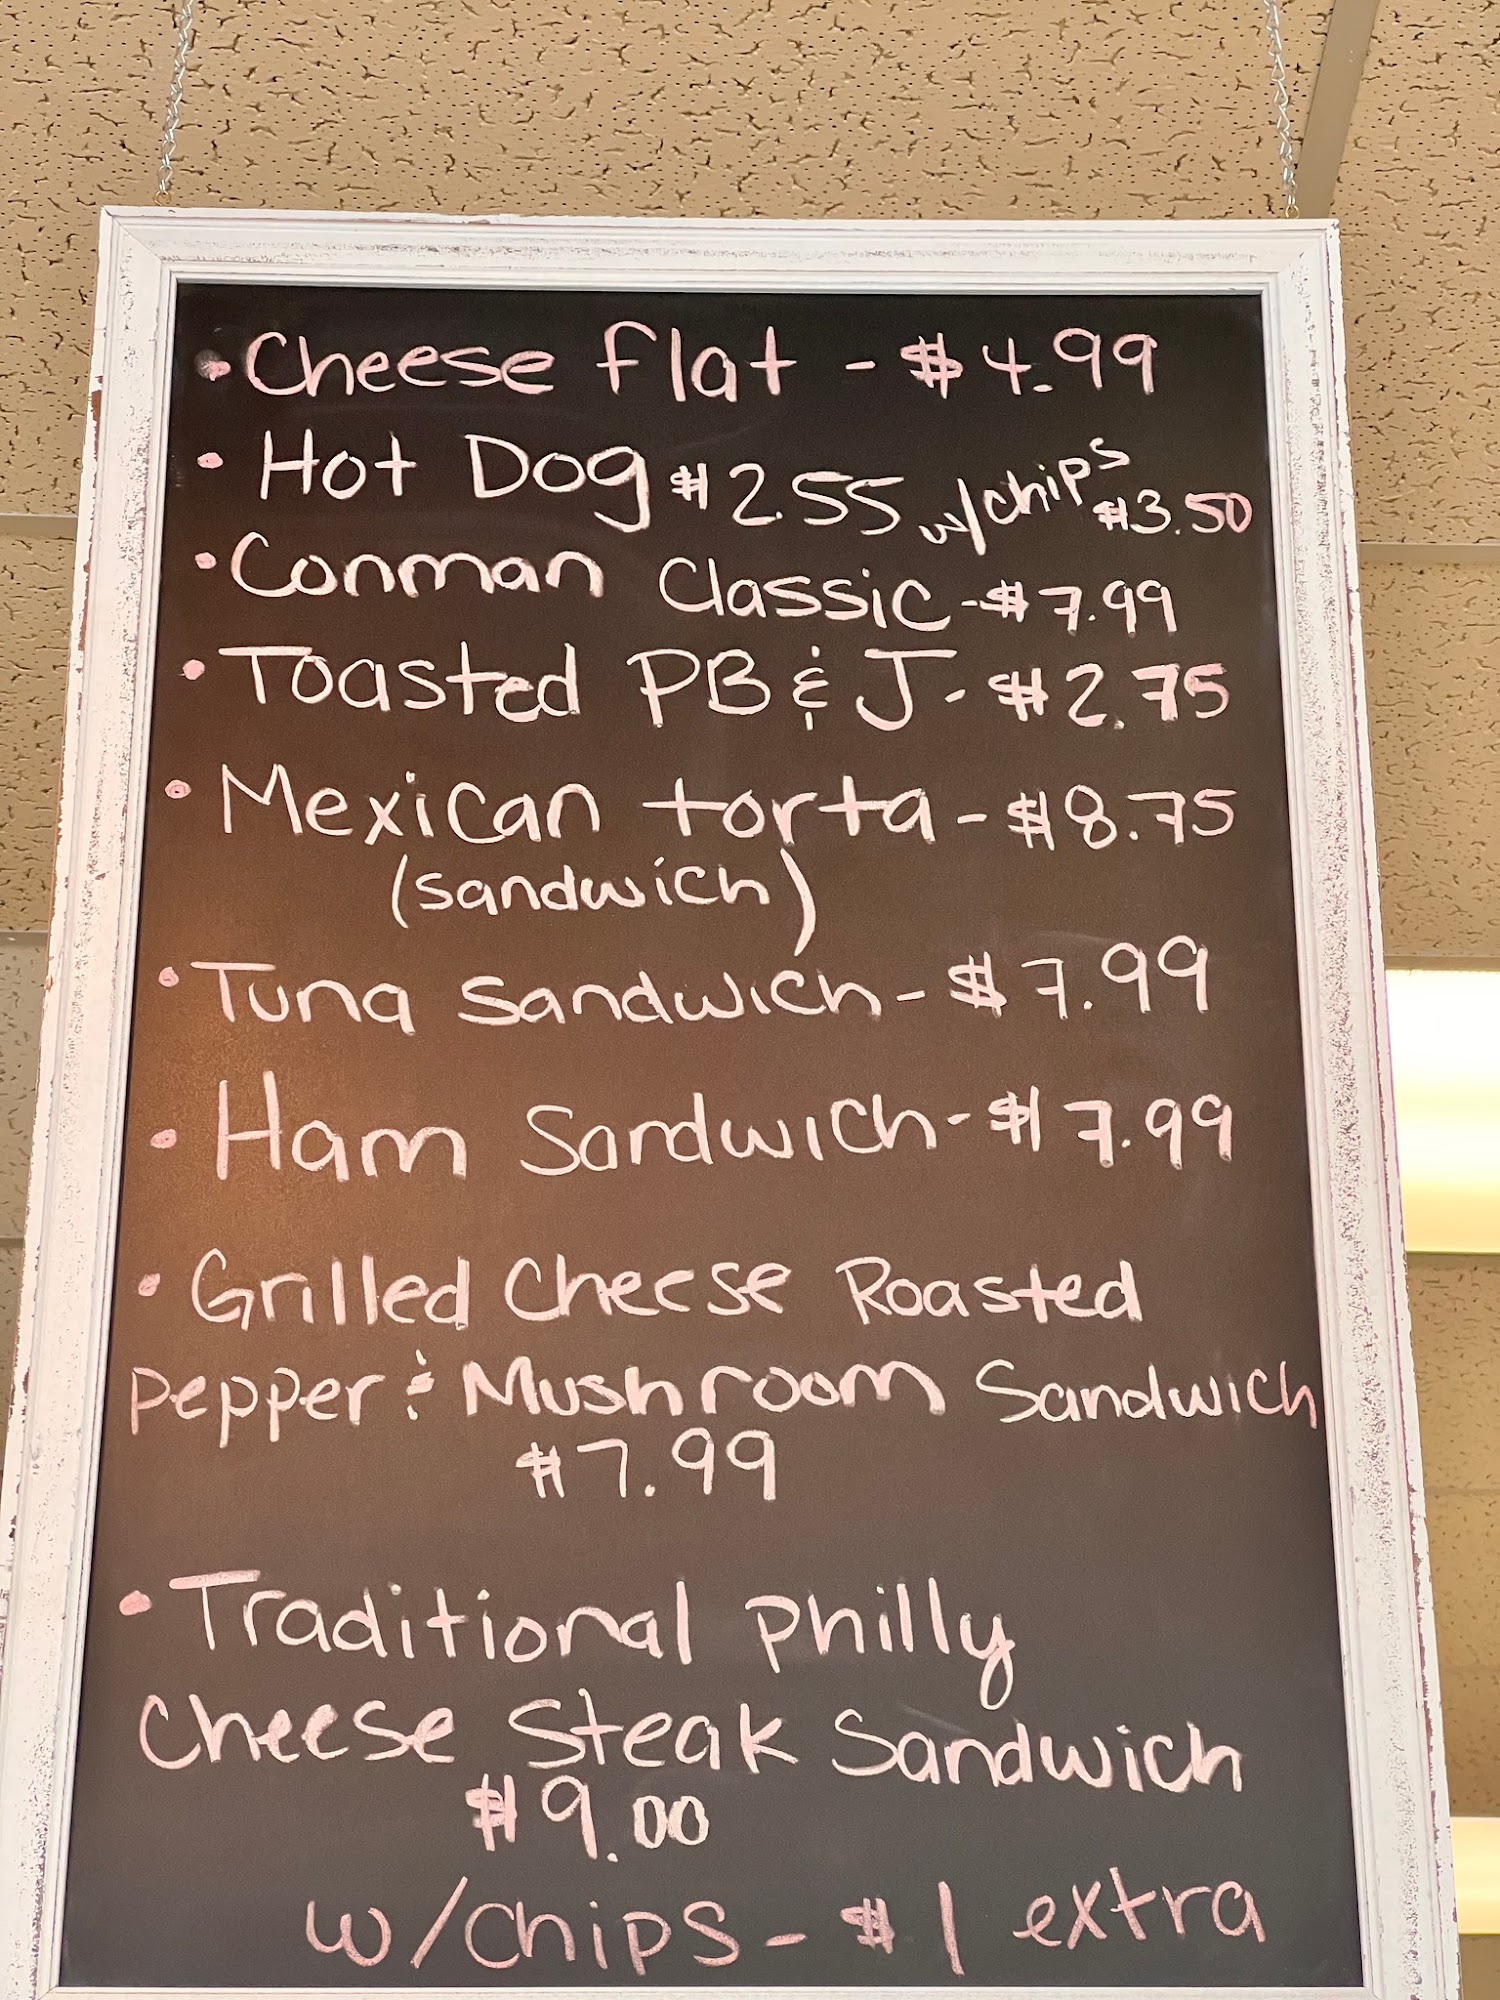 • Cheese flat - $4.99
• Hot Dog $2.55 w/chips $3.50
• Conman Classic - $7.99
• Toasted PB & J - $2.75
• Mexican torta - $8.75
(sandwich)
• Tuna sandwich - $7.99
• Ham Sandwich - $7.99
• Grilled Cheese Roasted
Pepper & Mushroom Sandwich
$7.99
• Traditional Philly
Cheese Steak Sandwich
$9.00
w/chips - $1 extra